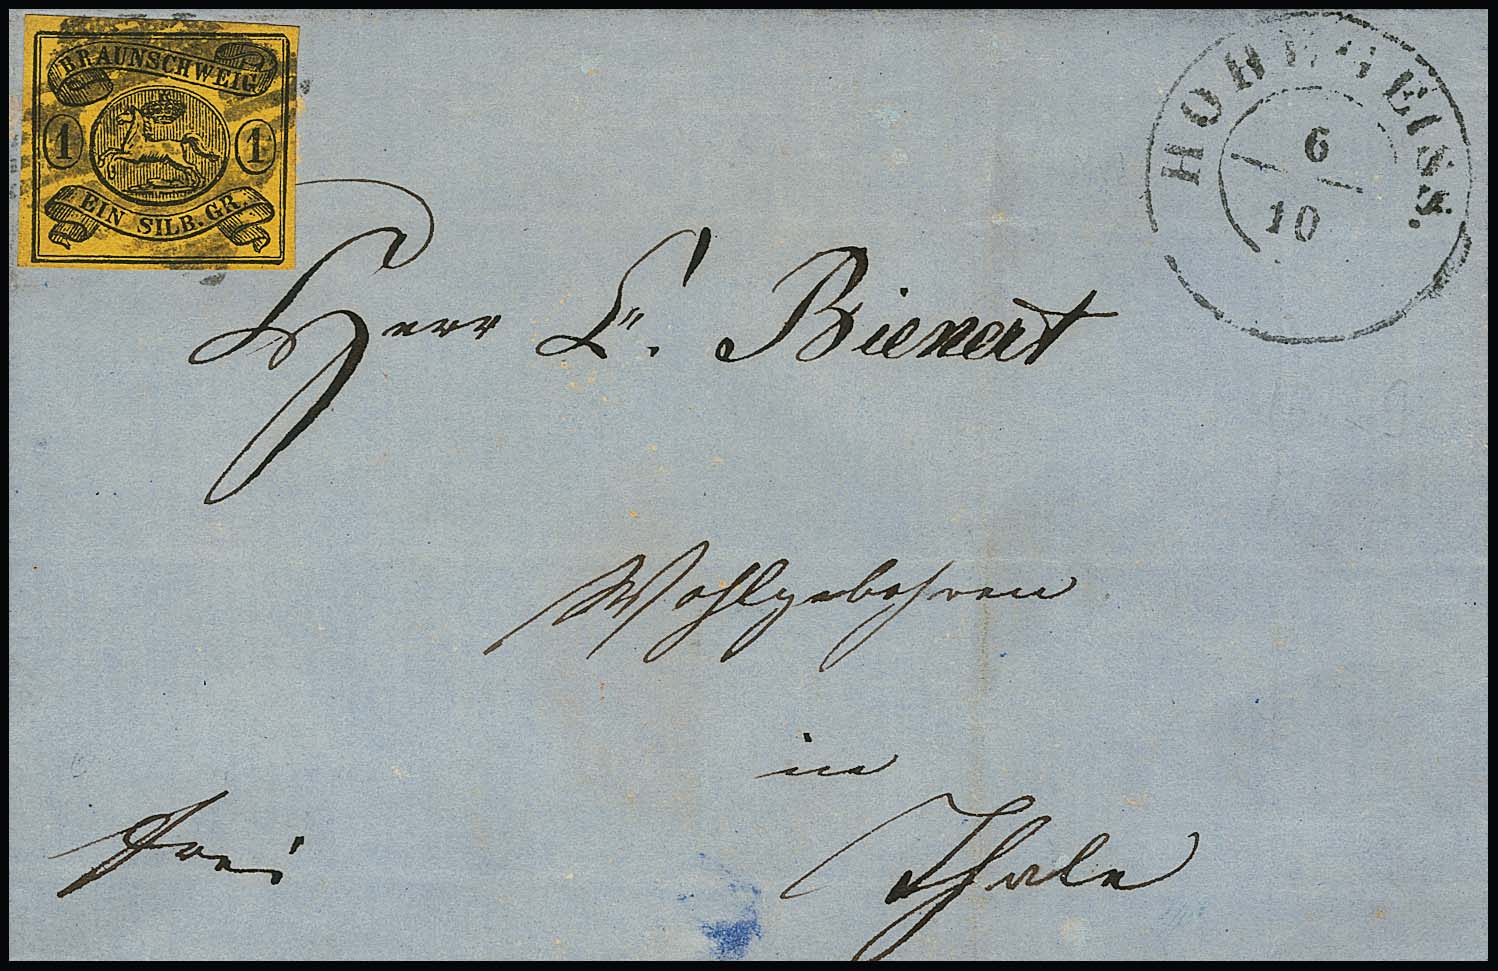 BRAUNSCHWEIG
1 1
EIN SILB. GR.
HOHEGEISS.
6
10
Herr E. Bienert
Wohlgeboren
in
Thale
frei